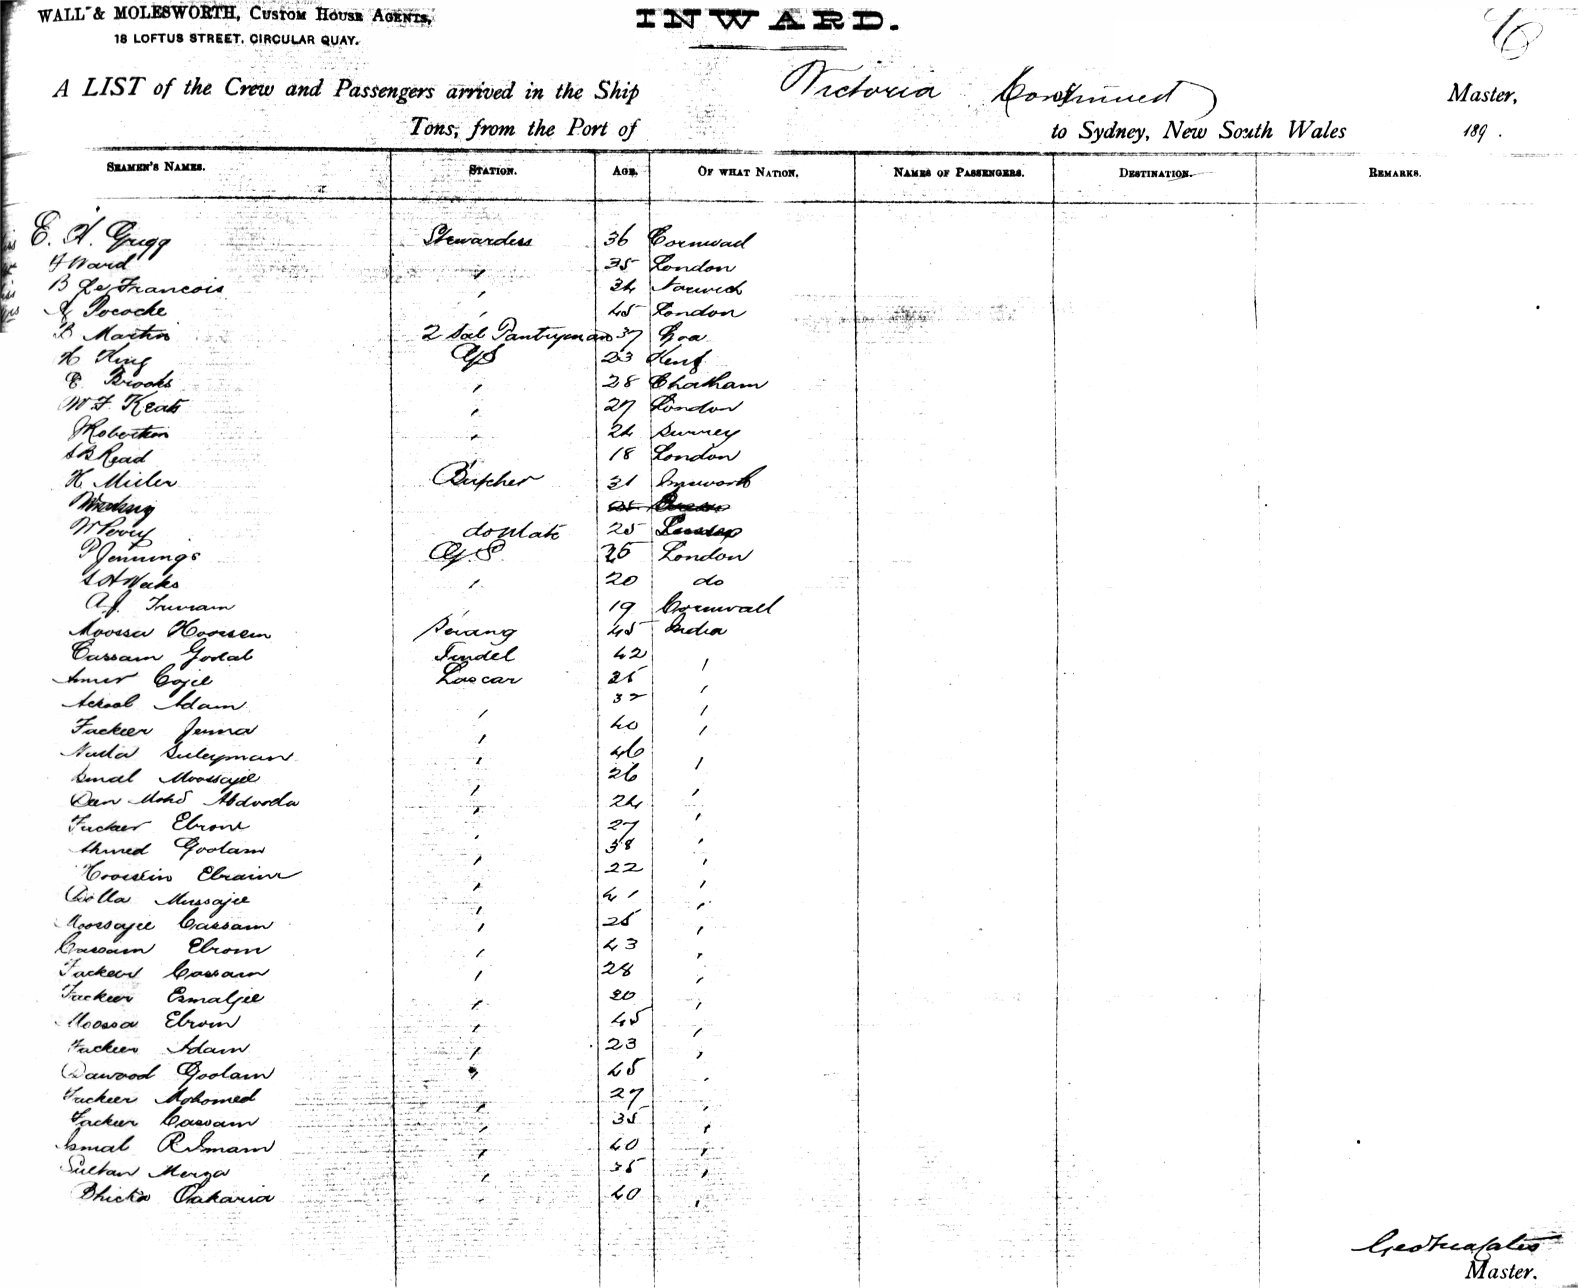 WALL & MOLESWORTH, CUSTOM HOUSE AGENTS,
18 LOFTUS STREET, CIRCULAR QUAY.
INWARD.
A LIST of the Crew and Passengers arrived in the Ship Victoria Continued Master,
Tons, from the Port of to Sydney, New South Wales 189 .
SEAMEN'S NAMES. STATION. AGE. OF WHAT NATION. NAMES OF PASSENGERS. DESTINATION. REMARKS.
E. H. Grigg Stewardess 36 Cornwall
Ward " 35 London
B Le Francois " 34 Norwich
Pococke " 45 London
B Martin 2 Sal Pantryman 37 Goa
H King GS 23 Kent
E Brooks " 28 Chatham
W F Keats " 27 London
J Robertson " 24 Surrey
S B Read 18 London
H Miller Butcher 31
W Povey do Mate 25
P Jennings G.S. 25 London
S H Weeks " 20 do
A. J. 19 Cornwall
Moossa Hoossein Serang 45 India
Cassam Goolab Tindel 42 "
Amir Cojee Lascar 25 "
Adam " 32 "
Fackeer Jenna " 40 "
Suleyman " 46 "
Ismal Moossajee " 26 "
Deen Mohd Abdoola " 24 "
Fackeer Ebrom " 27 "
Ahmed Goolam " 38 "
Hoossein Ebraim " 22 "
Mussajee " 41 "
Moossajee Cassam " 25 "
Cassam Ebrom " 43 "
Fackeer Cassam " 28 "
Fackeer Esmaljee " 20 "
Moossa Ebrom " 45 "
Fackeer Adam " 23 "
Dawood Goolam " 45 "
Fackeer Mohomed " 27 "
Fackeer Cassam " 35 "
Ismal R Imam " 40 "
Sultan Merza " 35 "
Bhicka Oakaria 40 "
Master.